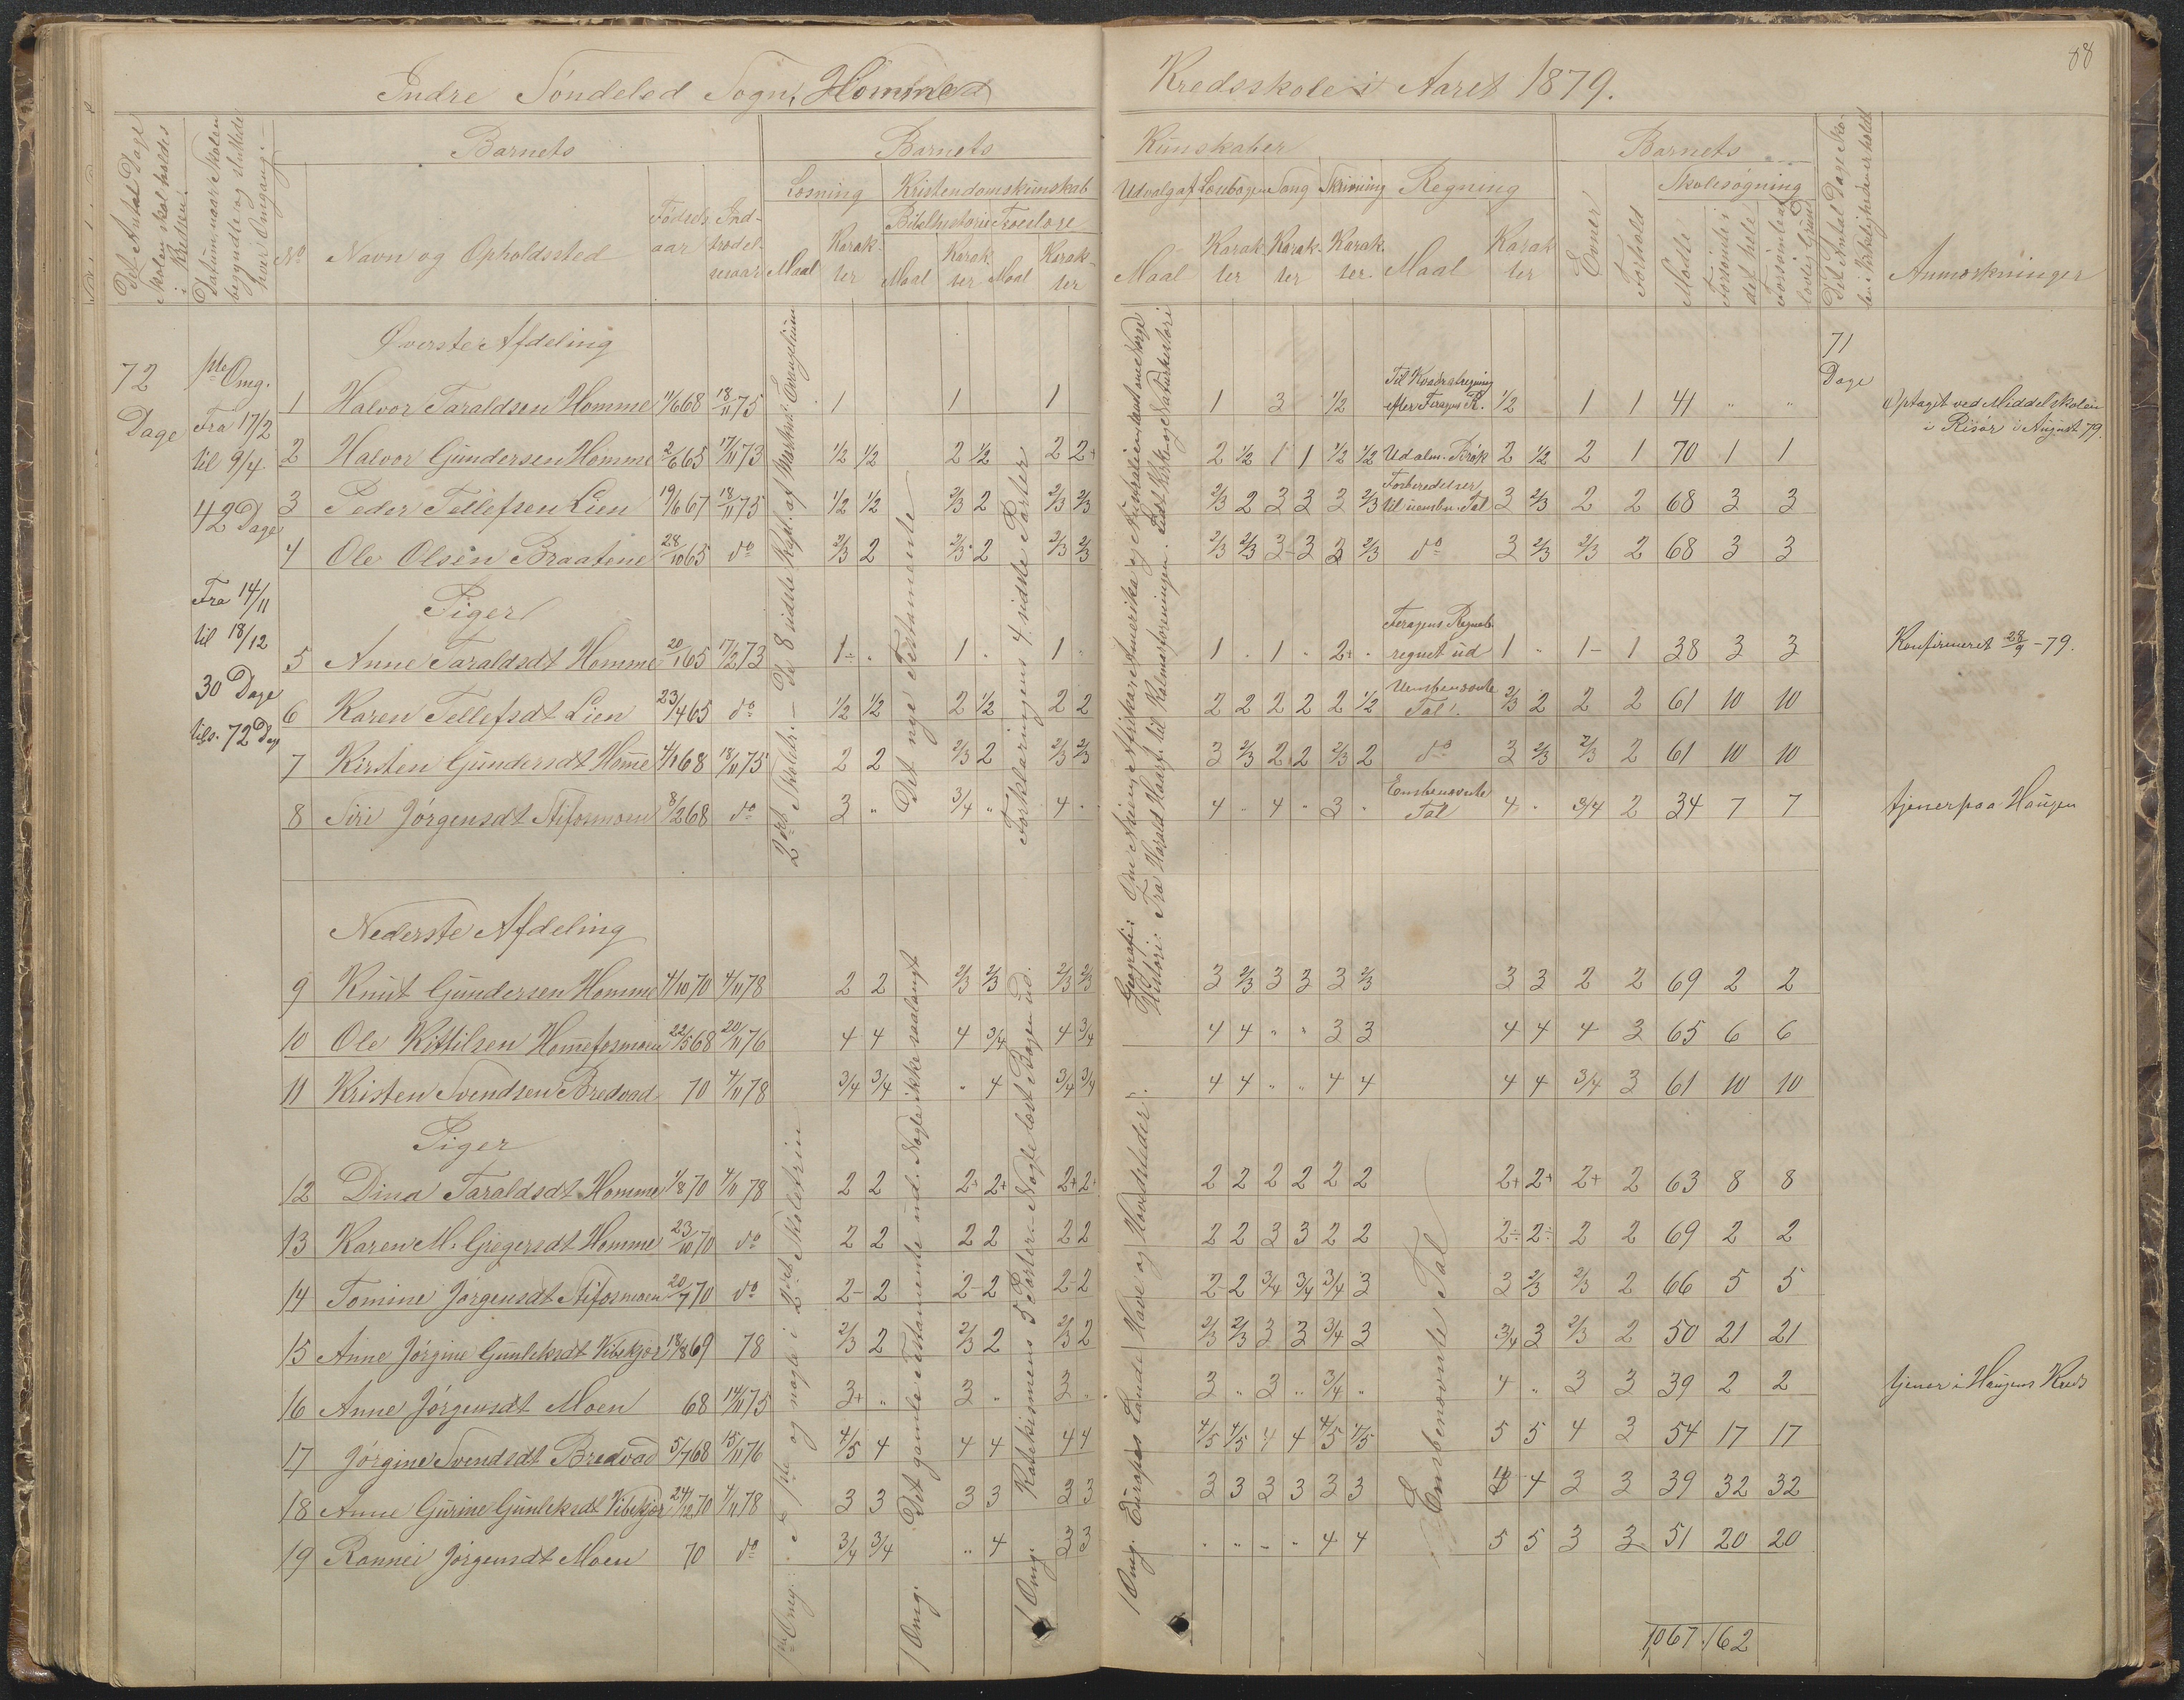 88
Indre Söndeled Sogn, Homme Kredsskole i Aaret 1879.
Det Antal Dage Skolen skal holdes i Kredsen.
Datum naar Skolen begyndte og sluttede hver Omgang.
Barnets Barnets Kunskaber Barnets
No Navn og Opholdssted Fødsels aar Ind- trædel- sesaar
Læsning Kristendomskunskab Udvalg af Læsebogen Sang Skrivning Regning Evner Forhold Skolesøgning
Bibelhistorie Troeslære
Maal Karak- ter Maal Karak- ter Maal Karak- ter Maal Karak- ter Karak- ter Karak- ter. Maal Karak- ter
Mødte Forsømte i det hele Forsømte af lovlig Grund
Det Antal Dage Skolen i Virkeligheden er holdt
Anmærkninger
Øverste Afdeling
72 Dage
1ste Omg.
Fra 17/2 til 9/4.
42 Dage
Fra 14/11 til 18/12
30 Dage
tils. 72 Dage
71 Dage
1 Halvor Taraldsen Homme 11/6 68 18/11 75 1 1 1 1 3 1/2 Til Kvadratregning efter Feragens R. 1/2 1 1 41 " " Optaget ved Middelskolen i Risør i August 79.
2 Halvor Gundersen Homme 2/6 65 17/11 73 1/2 1/2 2 1/2 2 2+ 2 1/2 1 1 1/2 1/2 Ud alm. Brøk 2 1/2 2 1 70 1 1
3 Peder Tellefsen Lien 19/6 67 18/11 75 1/2 1/2 2/3 2 2/3 2/3 2/3 2 3 3 3 2/3 Forberedelser til uensbn. Tal 3 2/3 2 2 68 3 3
4 Ole Olsen Braatene 28/10 65 do 2/3 2 2/3 2 2/3 2/3 2/3 2/3 3- 3 3 2/3 do 3 2/3 2/3 2 68 3 3
Piger
5 Anne Taraldsdt Homme 20/1 65 17/2 73 1÷ " 1 " 1 " 1 " 1 " 2+ " Feragens Regneb. regnet ud 1 " 1- 1 38 3 3 Konfirmeret 28/9 - 79.
6 Karen Tellefsdt Lien 23/4 65 do 1/2 1/2 2 1/2 2 2 2 2 2 2 2 1/2 Uensbenævnte Tal. 2/3 2 2 2 61 10 10
7 Kirsten Gundersdt Homme 4/1 68 18/11 75 2 2 2/3 2 2/3 2/3 3 2/3 2 2 2/3 2 do 3 2/3 2/3 2 61 10 10
8 Siri Jörgensdt Stifosmoen 8/2 68 do 3 " 3/4 " 4 " 4 " 4 " 3 " Ensbenævnte Tal 4 " 3/4 2 34 7 7 tjener paa Haugen
Nederste Afdeling
9 Knut Gundersen Homme 4/10 70 4/11 78 2 2 2/3 2/3 2/3 2/3 3 2/3 3 3 3 2/3 3 3 2 2 69 2 2
10 Ole Kittilsen Hommefosmoen 22/5 68 20/11 76 4 4 4 3/4 4 3/4 4 4 " " 3 3 4 4 4 3 65 6 6
11 Kristen Svendsen Bredvad 70 4/11 78 3/4 3/4 " 4 3/4 3/4 4 4 " " 4 4 4 4 3/4 3 61 10 10
Piger
12 Dina Taraldsdt Homme 4/8 70 4/11 78 2 2 2+ 2+ 2+ 2+ 2 2 2 2 2 2 2+ 2+ 2+ 2 63 8 8
13 Karen M. Gregersdt Homme 23/10 70 do 2 2 2 2 2 2 2 2 3 3 2 2 2÷ 2÷ 2 2 69 2 2
14 Tomine Jörgensdt Stifosmoen 20/7 70 do 2- 2 2- 2 2- 2 2- 2 3/4 3/4 3/4 3 3 2/3 2/3 2 66 5 5
15 Anne Jörgine Gunleksdt Vibskjær 18/8 69 78 2/3 2 2/3 2 2/3 2 2/3 2/3 3 3 3/4 3 3/4 3 2/3 2 50 21 21
16 Anne Jörgensdt Moen 68 14/11 75 3+ " 3 " 3 " 3 " 3 " 3/4 " 4 " 3 3 39 2 2 tjener i Haugens Kreds
17 Jörgine Svendsdt Bredvad 5/7 68 15/11 76 4/5 4 4 4 4 4 4/5 4/5 4 4 4/5 4/5 5 5 4 3 54 17 17
18 Anne Gurine Gunleksdt Vibskjær 24/12 70 4/11 78 3 3 3 3 3 3 3 3 3 3 3 3 4 4 3 3 39 32 32
19 Rannei Jörgensdt Moen 70 do 3/4 3/4 " 4 3 3 " " " " 4 4 5 5 3 3 51 20 20
1,067 162
2det Skoletri- De 8 sidste Kapl. af Markus Evangelium
Det nye Testamente
Forklaringens 4 sidste Parter
Geografi: Om Asien, Afrika, Amerika og Australien samt om Norge
Historie: Fra Harald Haarf. til Kalmarforeningen. Lidt Kirke og Naturhistori
1ste Omg. I 1ste og nogle i 2det Skoletrin
1 Omg. Det gamle Testamente ud. Nogle ikke saalangt
1 Omg. Katekismens 5 Parter. Nogle læst Bogen ud.
1 Omg. Europas Lande, Have og Hovedstæder.
Ensbenævnte Tal